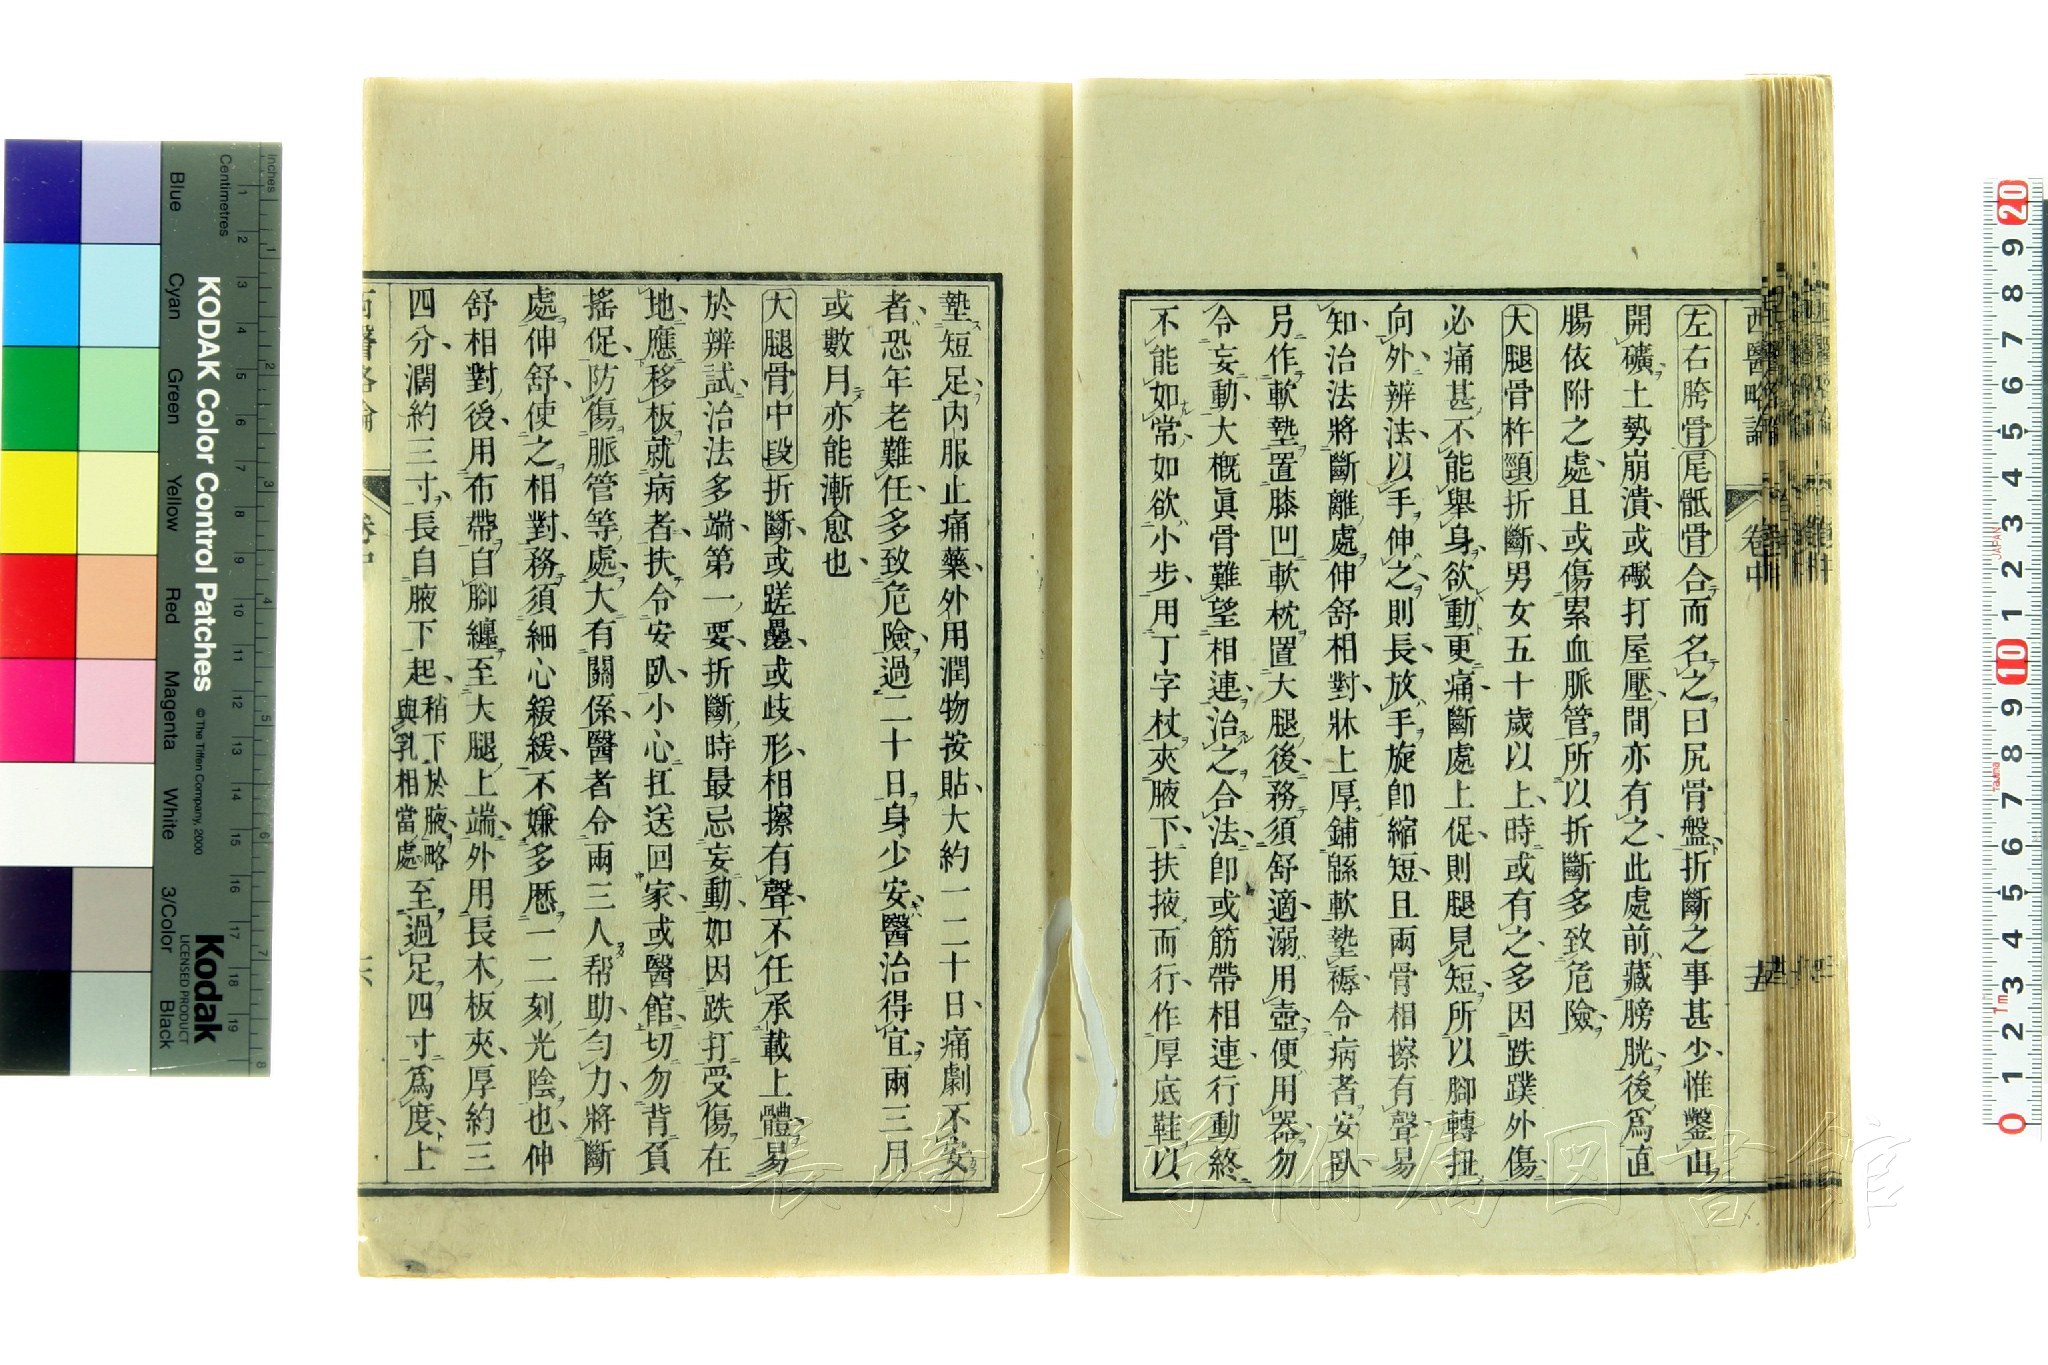 西醫略論 卷中
左右胯骨尾骶骨合而名之曰尻骨盤折斷之事甚少惟鑿山
開礦土勢崩潰或礮打屋壓間亦有之此處前藏膀胱後爲直
腸依附之處且或傷累血脈管所以折斷多致危險
大腿骨杵頸折斷男女五十歲以上時或有之多因跌蹼外傷
必痛甚不能舉身欲動更痛斷處上促則腿見短所以腳轉扭
向外辨法以手伸之則長放手旋卽縮短且兩骨相擦有聲易
知治法將斷離處伸舒相對牀上厚鋪緜軟墊褥令病者安臥
另作軟墊置膝凹軟枕置大腿後務須舒適溺用壺便用器勿
令妄動大概眞骨難望相連治之合法卽或筋帶相連行動終
不能如常如欲小步用丁字杖夾腋下扶掖而行作厚底鞋以
墊短足內服止痛藥外用潤物荌貼大約一二十日痛劇不安
者恐年老難任多致危險過二十日身少安醫治得宜兩三月
或數月亦能漸愈也
大腿骨中段折斷或蹉疊或歧形相擦有聲不任承載上體易
於辨試治法多端第一要折斷時最忌妄動如因跌打受傷在
地應移板就病者扶令安臥小心扛送回家或醫館切勿背負
搖促防傷脈管等處大有關係醫者令兩三人帮助勻力將斷
處伸舒使之相對務須細心緩緩不嫌多厯一二刻光陰也伸
舒相對後用布帶自腳纏至大腿上端外用長木板夾厚約三
四分濶約三寸長自腋下起稍下於腋略與乳相當處至過足四寸爲度上
卷中
KODAK Color Control Patches
© The Tiffen Company, 2000
Kodak
LICENSED PRODUCT
Blue Cyan Green Yellow Red Magenta White 3/Color Black
Inches
Centimetres
長崎大学附属図書館